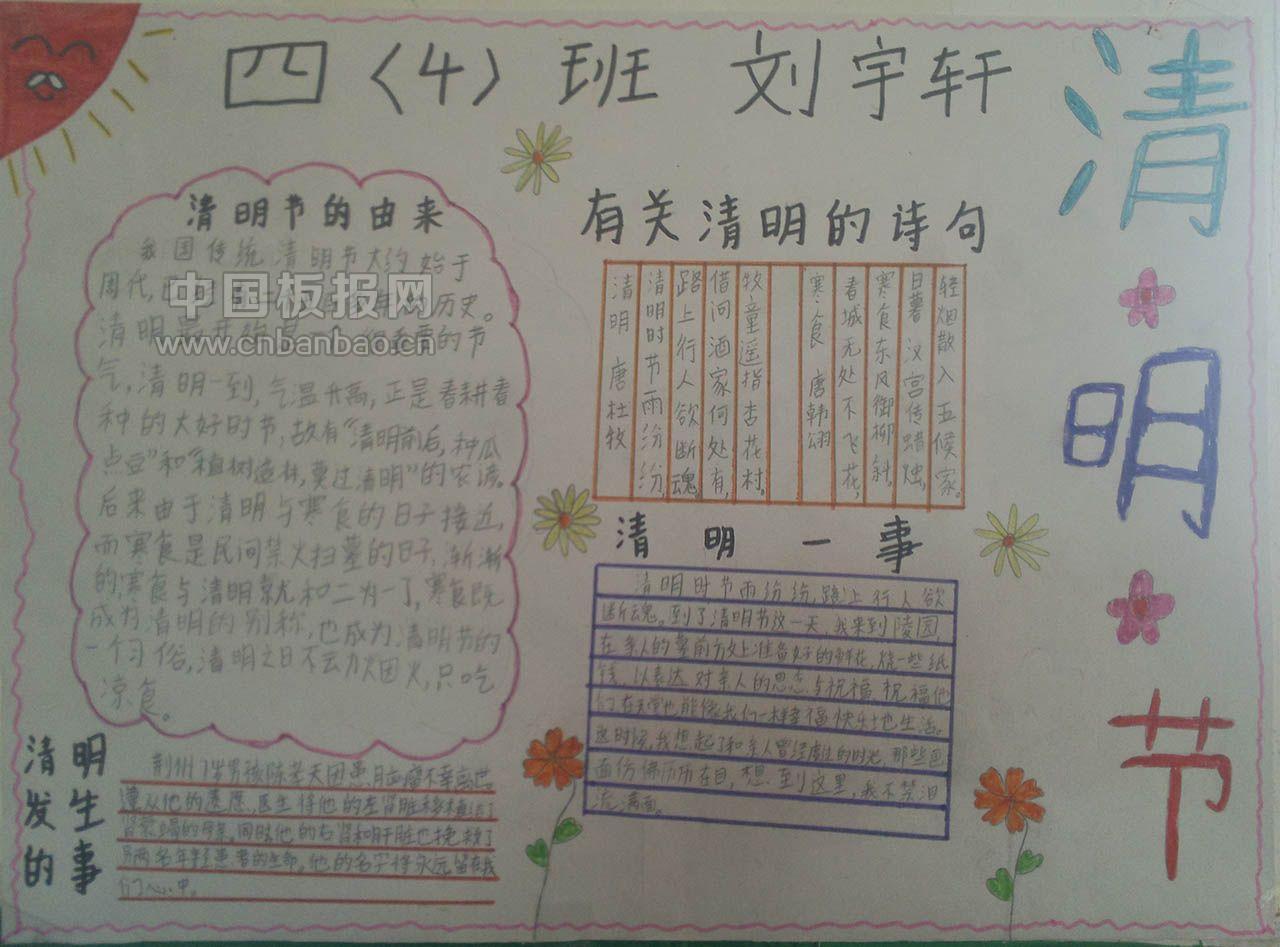 四〈4〉班 刘宇轩
清明节
清明节的由来
我国传统清明节大约始于
周代，已
历史。
清明最开始是一个很重要的节
气，清明一到，气温升高，正是春耕春
种的大好时节，故有“清明前后，种瓜
点豆”和“植树造林，莫过清明”的农谚。
后来由于清明与寒食的日子接近，
而寒食是民间禁火扫墓的日子，渐渐
的，寒食与清明就和二为一了，寒食既
成为清明的别称，也成为清明节的
一个习俗，清明之日不动烟火，只吃
凉食。
中国板报网
www.cnbanbao.cn
有关清明的诗句
清明 唐杜牧
清明时节雨纷纷，
路上行人欲断魂。
借问酒家何处有，
牧童遥指杏花村。
寒食 唐韩翃
春城无处不飞花，
寒食东风御柳斜。
日暮汉宫传蜡烛，
轻烟散入五候家。
清明一事
清明时节雨纷纷，路上行人欲
断魂。到了清明节这一天，我来到陵园，
在亲人的墓前方文上准备好的鲜花，烧一些纸
钱，以表达对亲人的思念与祝福，祝福他
们在天堂也能像我们一样幸福快乐地生活。
这时候，我想起了和亲人曾经度过的时光，那些画
面仿佛历历在目，想到这里，我不禁泪
流满面。
清明发生的事
荆州7岁男孩陈孝天因患目脑瘤不幸离世
遵从他的遗愿，医生将他的左肾脏移植给了
肾衰竭的母亲，同时他的右肾和肝脏也挽救了
另两名年轻患者的生命。他的名字将永远留在我
们心中。